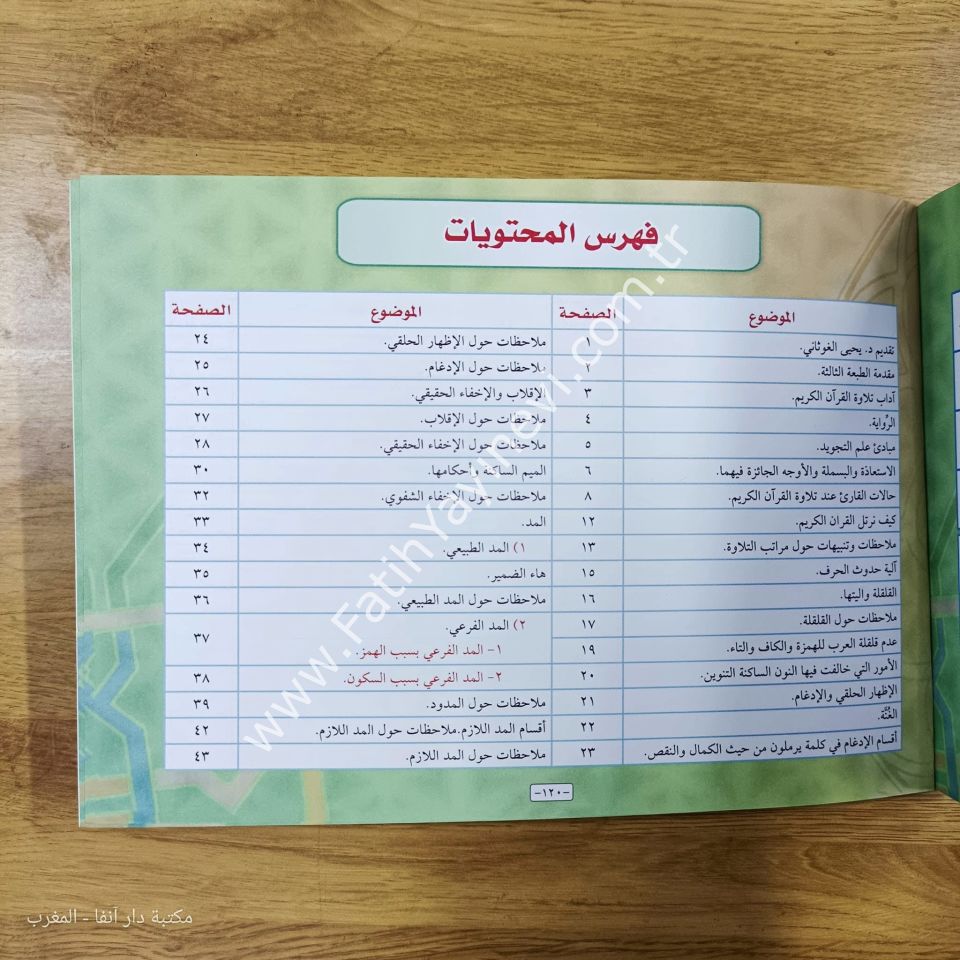 فهرس المحتويات
الموضوع الصفحة الموضوع الصفحة
تقديم د. يحيى الغوثاني. ١ ملاحظات حول الإظهار الحلقي. ٢٤
مقدمة الطبعة الثالثة. ٢ ملاحظات حول الإدغام. ٢٥
آداب تلاوة القرآن الكريم. ٣ الإقلاب والإخفاء الحقيقي. ٢٦
الرِّواية. ٤ ملاحظات حول الإقلاب. ٢٧
مبادئ علم التجويد. ٥ ملاحظات حول الإخفاء الحقيقي. ٢٨
الاستعاذة والبسملة والأوجه الجائزة فيهما. ٦ الميم الساكنة وأحكامها. ٣٠
حالات القارئ عند تلاوة القرآن الكريم. ٨ ملاحظات حول الإخفاء الشفوي. ٣٢
كيف نرتل القران الكريم. ١٢ المد. ٣٣
ملاحظات وتنبيهات حول مراتب التلاوة. ١٣ ١) المد الطبيعي. ٣٤
آلية حدوث الحرف. ١٥ هاء الضمير. ٣٥
القلقلة واليتها. ١٦ ملاحظات حول المد الطبيعي. ٣٦
ملاحظات حول القلقلة. ١٧ ٢) المد الفرعي. ٣٧
عدم قلقلة العرب للهمزة والكاف والتاء. ١٩ ١- المد الفرعي بسبب الهمز.
الأمور التي خالفت فيها النون الساكنة التنوين. ٢٠ ٢- المد الفرعي بسبب السكون. ٣٨
الإظهار الحلقي والإدغام. ٢١ ملاحظات حول المدود. ٣٩
الغُنَّة. ٢٢ أقسام المد اللازم.ملاحظات حول المد اللازم. ٤٢
أقسام الإدغام في كلمة يرملون من حيث الكمال والنقص. ٢٣ ملاحظات حول المد اللازم. ٤٣
-١٢٠-
www.FatihYayinevi.com.tr
مكتبة دار آنفا - المغرب